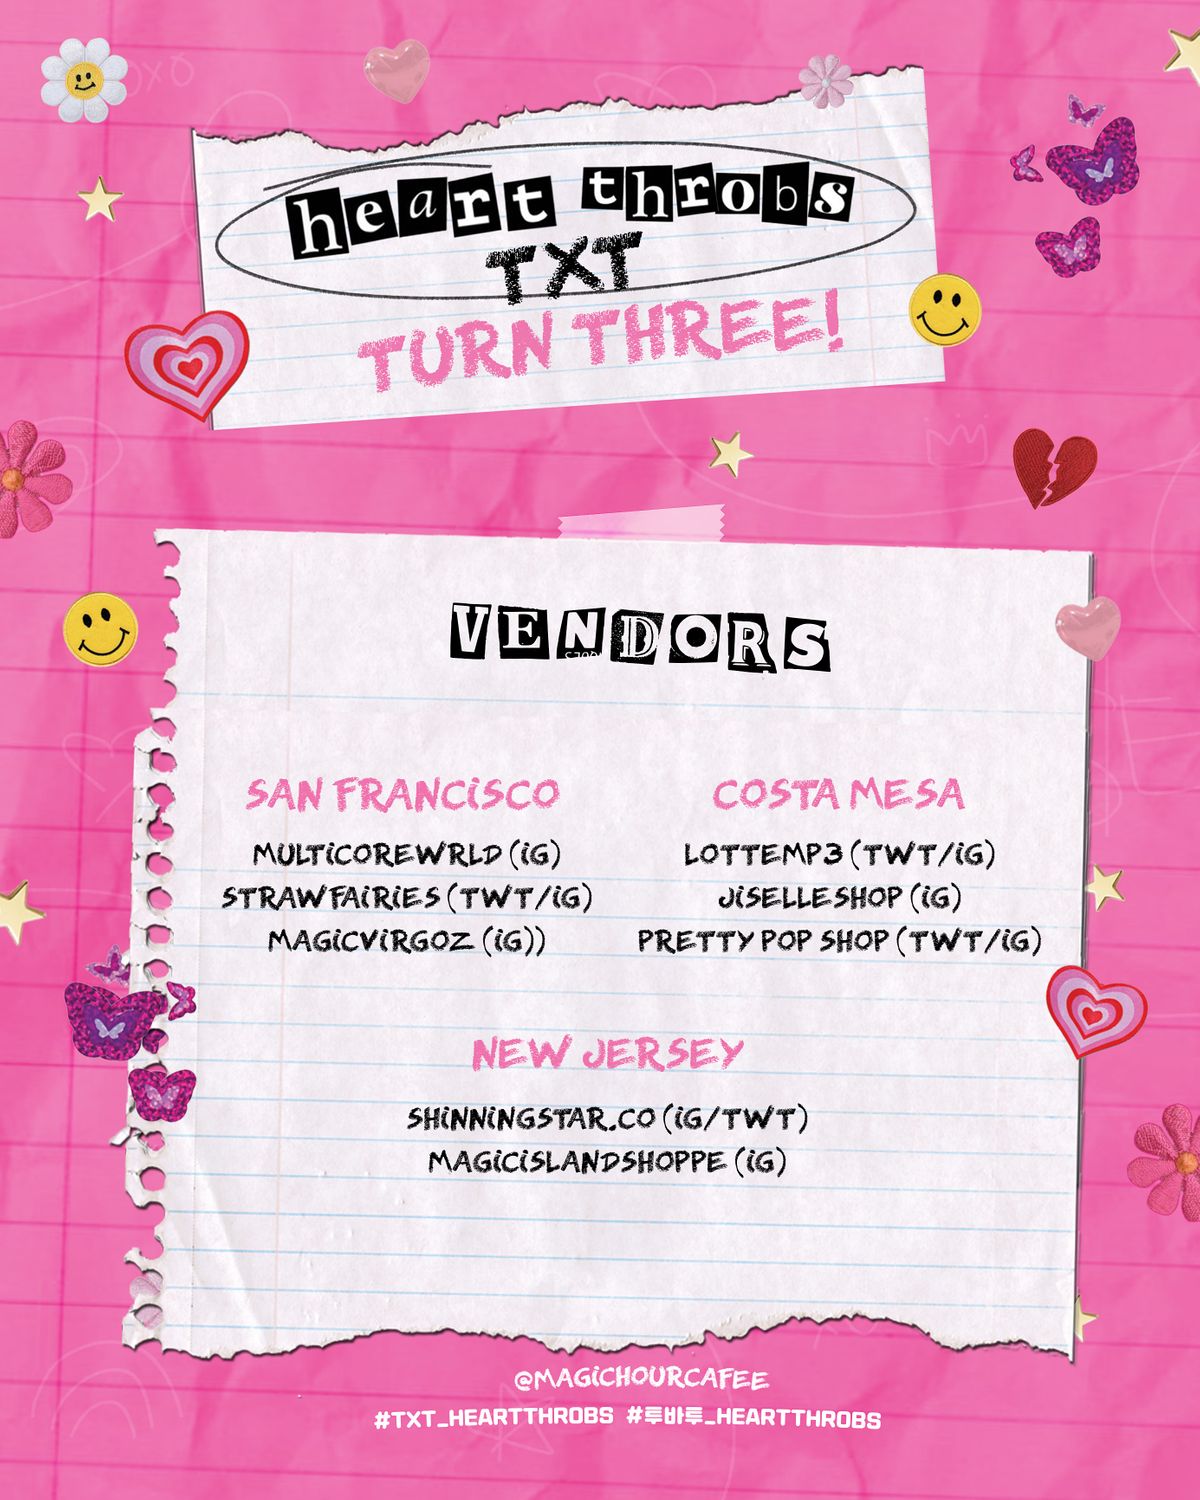 heart throbs
TXT
TURN THREE!
VENDORS
SAN FRANCISCO
MULTICOREWRLD (IG)
STRAWFAIRIES (TWT/IG)
MAGICVIRGOZ (IG))
COSTA MESA
LOTTEMP3 (TWT/IG)
JISELLESHOP (IG)
PRETTY POP SHOP (TWT/IG)
NEW JERSEY
SHINNINGSTAR.CO (IG/TWT)
MAGICISLANDSHOPPE (IG)
@MAGICHOURCAFEE
#TXT_HEARTTHROBS #투바투_HEARTTHROBS